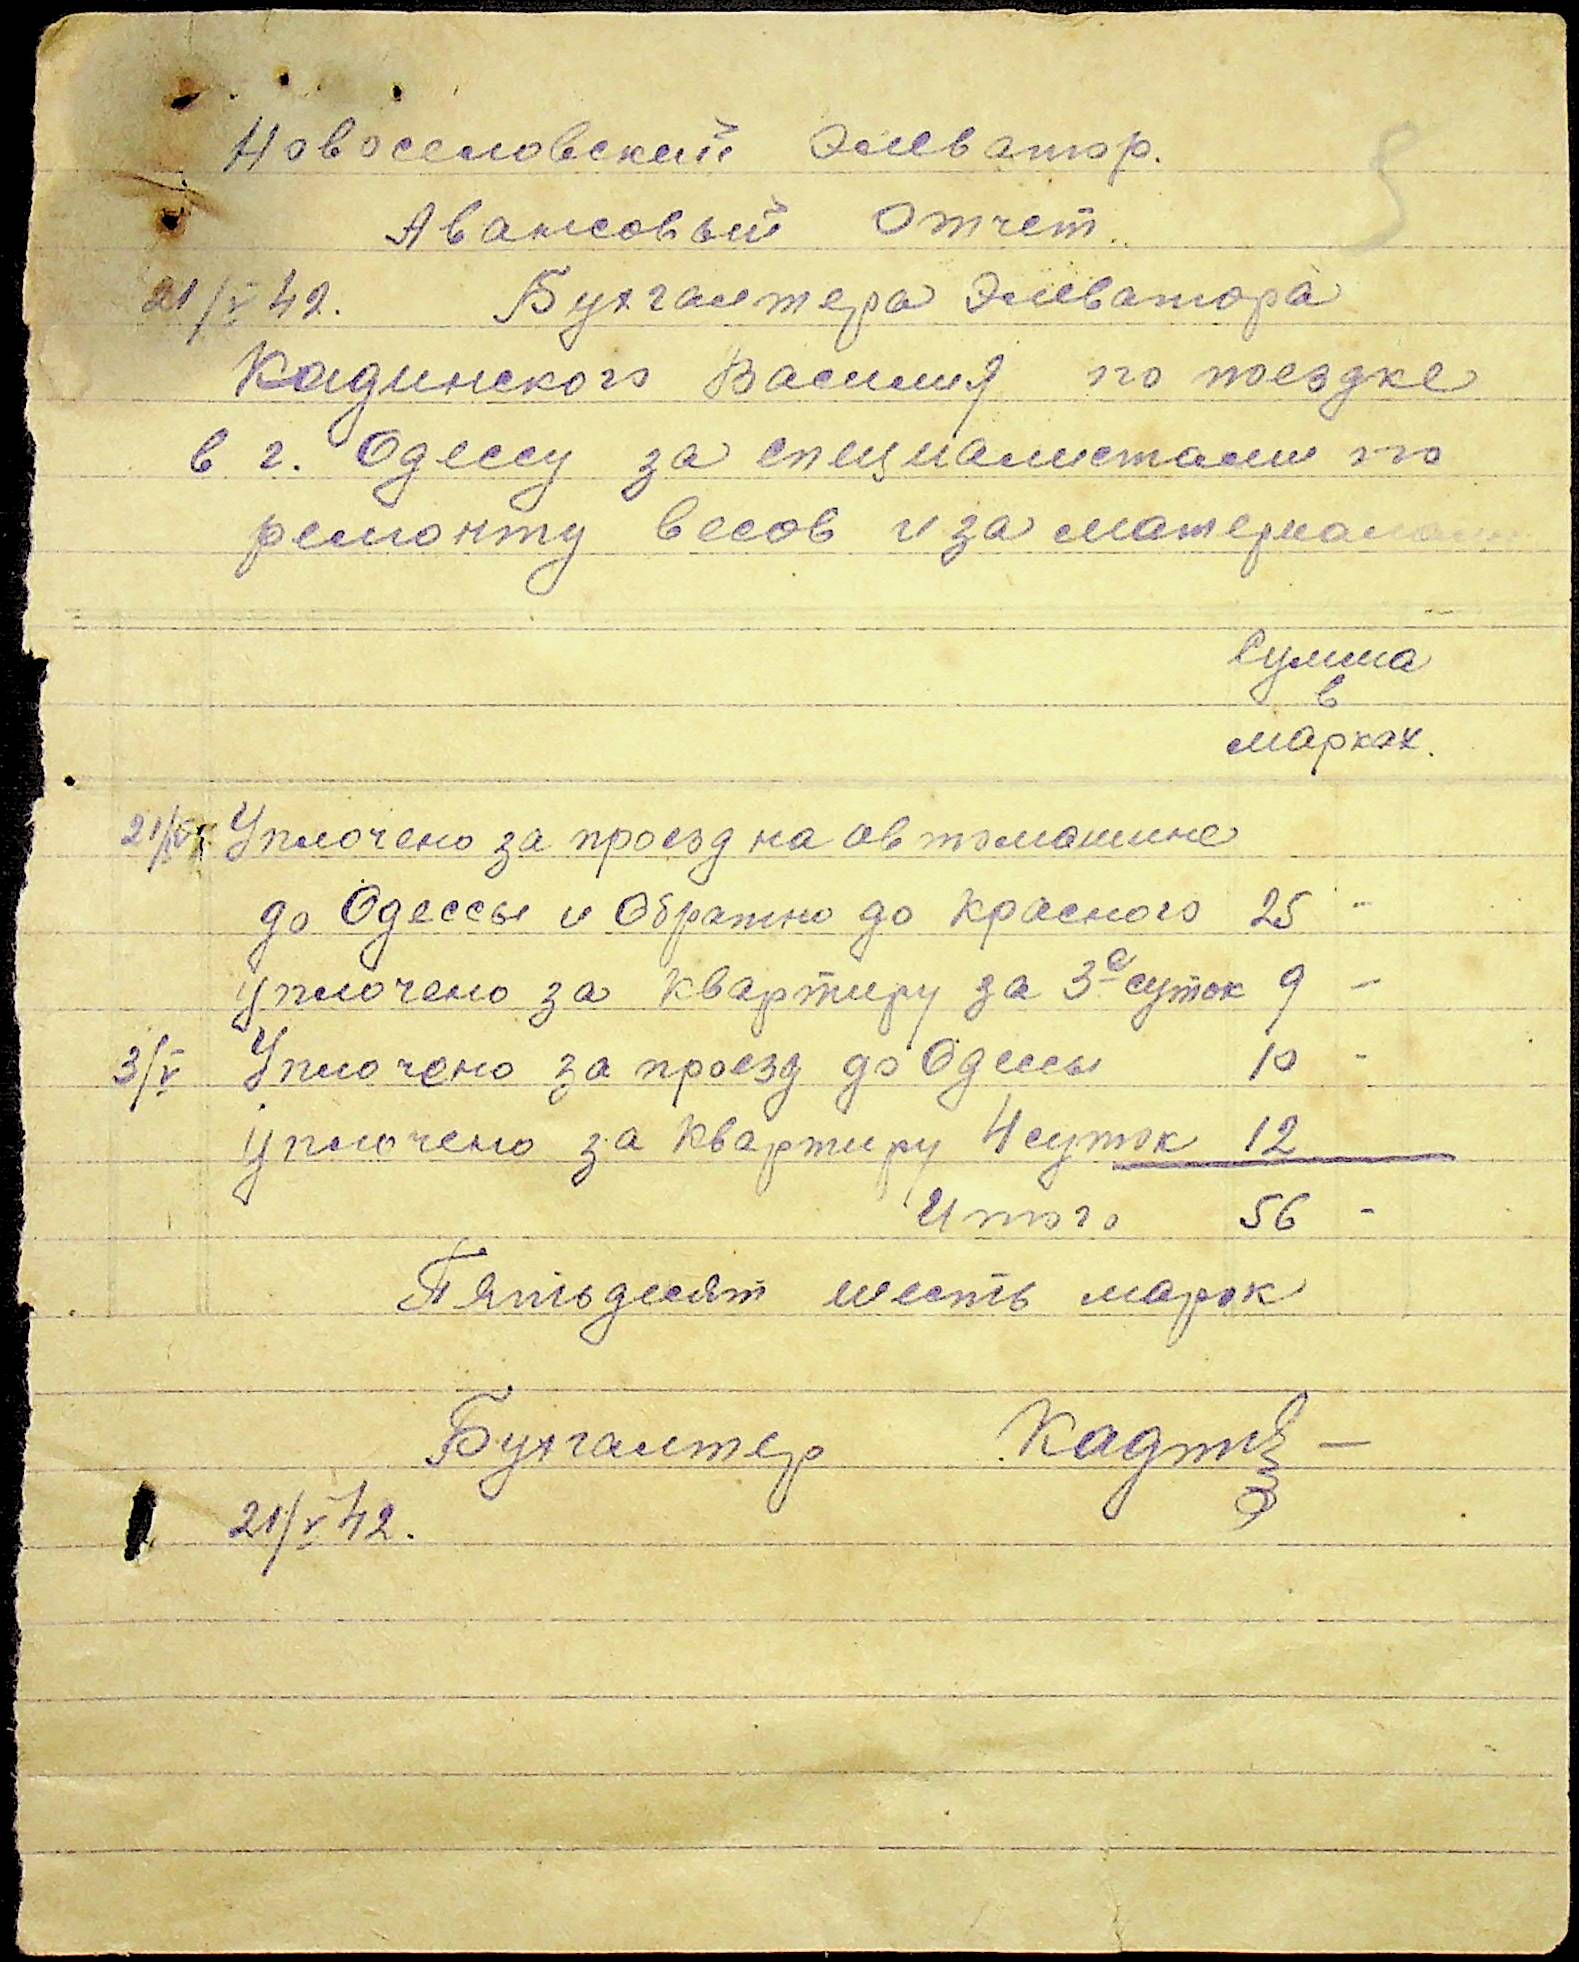 5
Новоселовский Элеватор.
Авансовый Отчет.
21/V 42. Бухгалтера Элеватора
Кадинского Василия по поездке
в г. Одессу за специалистами по
ремонту весов и за материалами
Сумма
в
марках.
21/IV Уплочено за проезд на автомашине
до Одессы и Обратно до Красного 25 -
Уплочено за квартиру за 3е суток 9 -
3/V Уплочено за проезд до Одессы 10 -
Уплочено за квартиру 4 суток 12
Итого 56 -
Пятьдесят шесть марок
Бухгалтер
21/V 42.